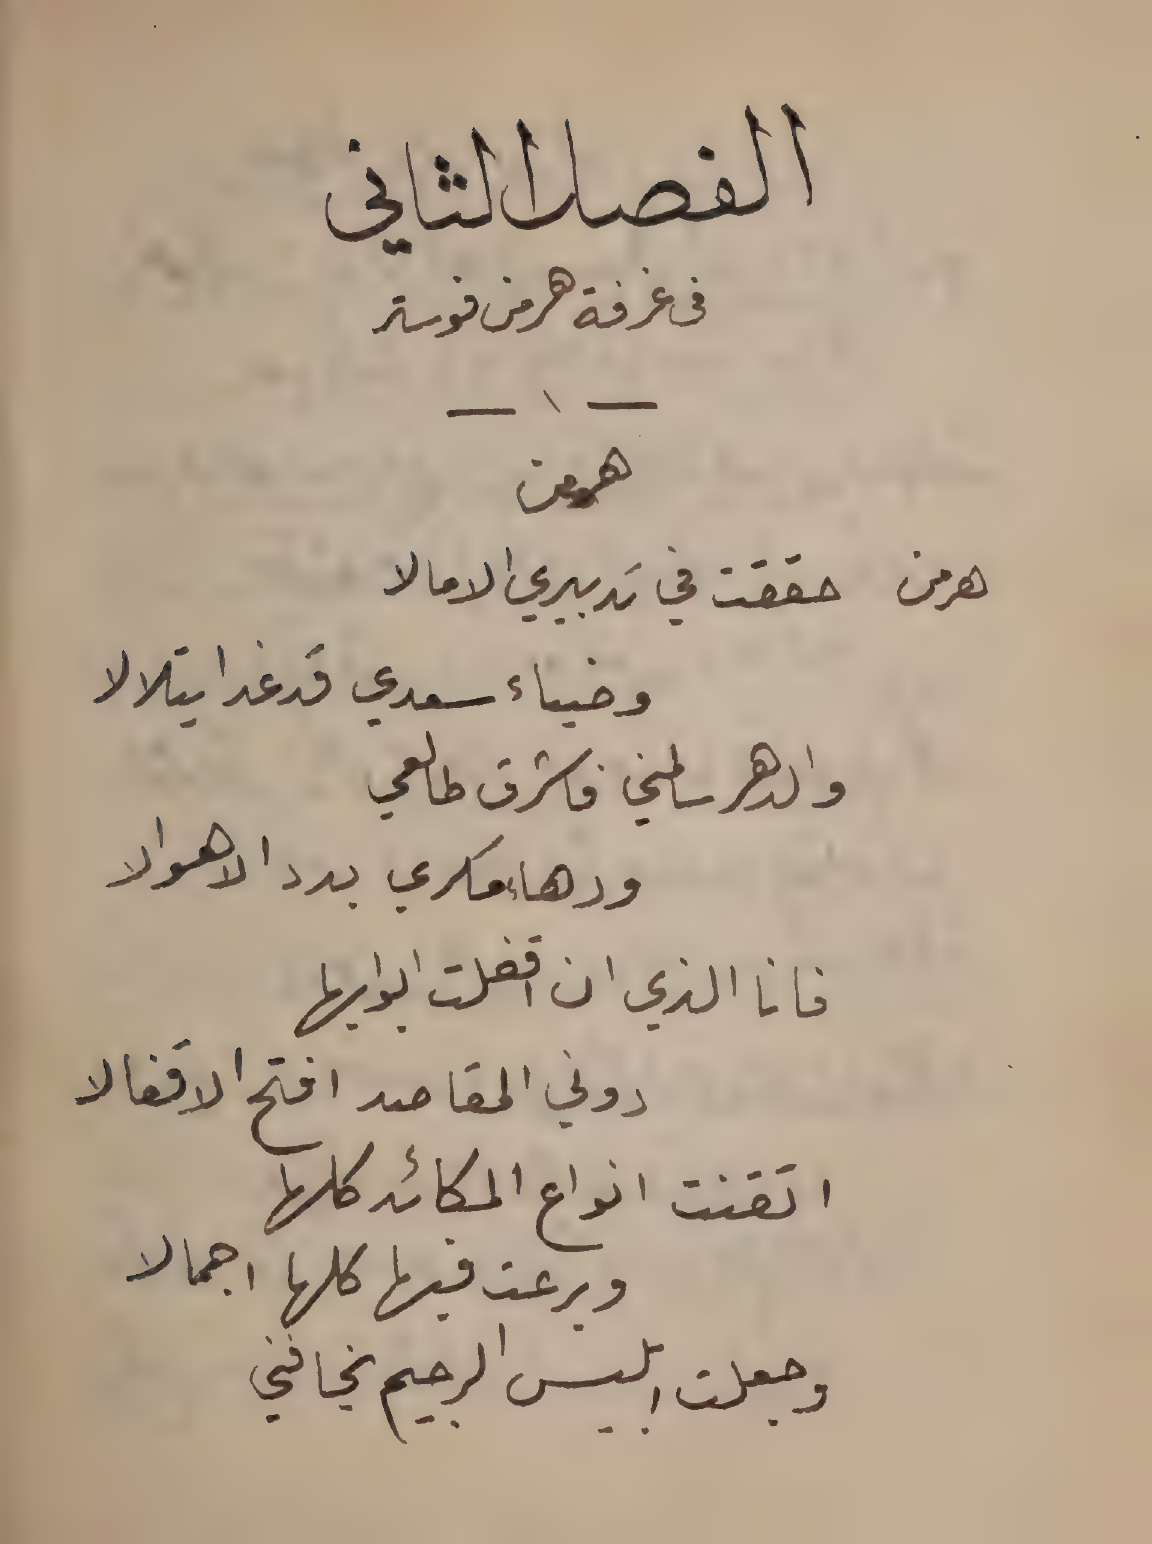 الفصل الثاني
في غرفة هرمن فوستر
— ١ —
هرمن
هرمن حققت في تدبيري الامالا
وضياء سعدي قد غدا يتلالا
والدهر سالمني فاشرق طالعي
ودهاء مكري بدد الاهوالا
فانا الذي ان اقفلت ابوابها
دوني المقاصد افتح الاقفالا
اتقنت انواع المكائد كلها
وبرعت فيها كلها اجمالا
وجعلت ابليس الرجيم يخافني